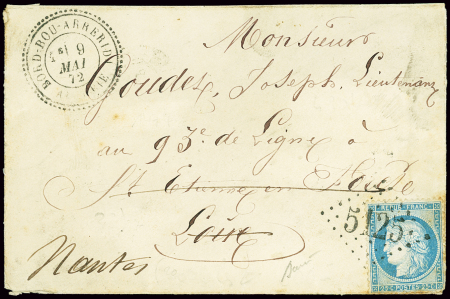 BORDJ-BOU-ARRERIDJ
9
MAI
72
Monsieur
Goudet, Joseph, Lieutenant
au 93e. de Ligne à
St Etienne en
Loire
Nantes
REPUB. FRANC.
5125
25 C POSTES 25 C